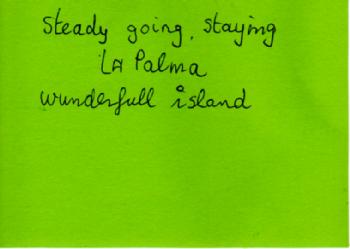 Steady going, staying
LA Palma
wunderfull island